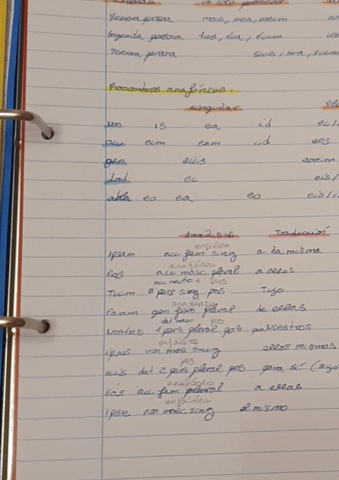 Primera persona meus, mea, meum
Segunda persona tuus, tua, tuum
Tercera persona suus, sua, suum
Pronombres anafóricos.
singular
nom is ea id
acu eum eam id eos
gen eius eorum
dat ei eis
abla eo ea eo eis
análisis Traducción
enfático
Ipsam acu fem sing a la misma
anafórico
Eos acu masc plural a ellos
acu neutro
Tuum 2 pers sing pos Tuyo
anafórico
Earum gen fem plural de ellas
pos
Vostros 2 pers plural pos
enfático
ipsos masc ellos mismos
pos
dat 2 pers plural pos para
anafórico
Eas acu fem plural a ellas
enfático
Ipse nom masc sing el mismo